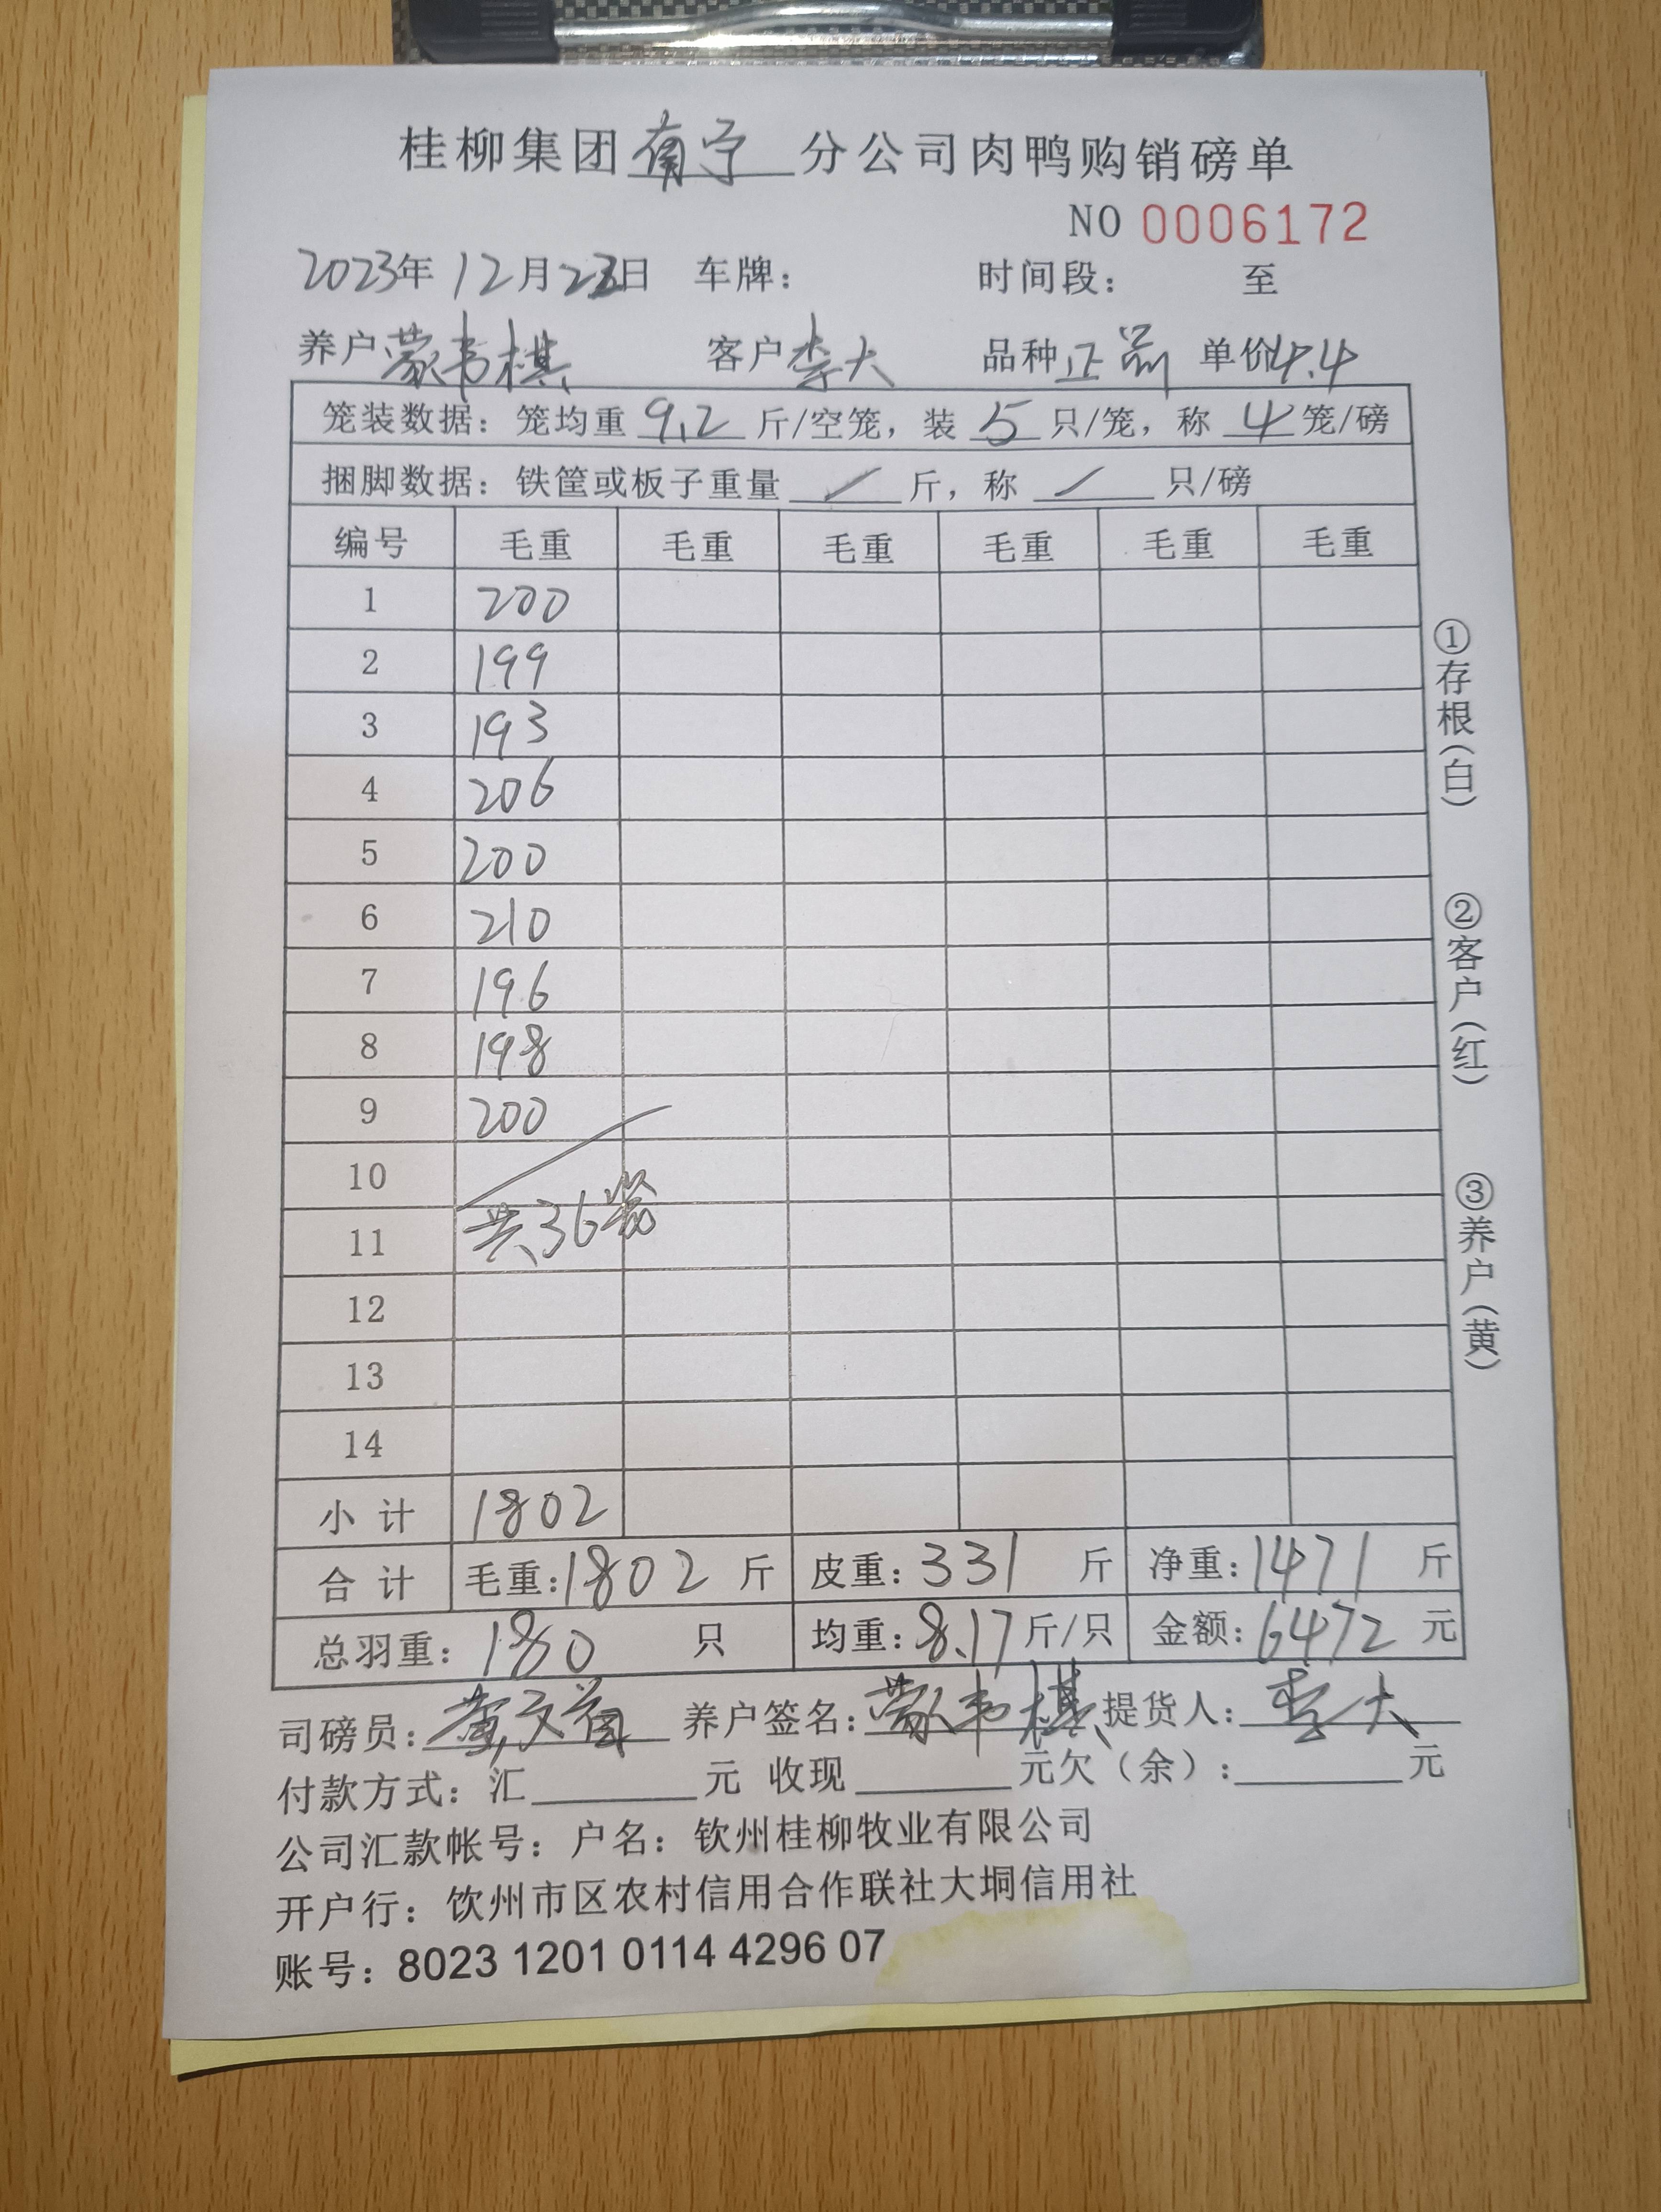 桂柳集团南宁分公司肉鸭购销磅单
NO 0006172
2023年12月23日 车牌： 时间段： 至
养户蒙韦棋 客户李大 品种正品 单价4.4
笼装数据：笼均重 9.2 斤/空笼，装 5 只/笼，称 4 笼/磅
捆脚数据：铁筐或板子重量 / 斤，称 / 只/磅
编号 毛重 毛重 毛重 毛重 毛重 毛重
1 200
2 199
3 193
4 206
5 200
6 210
7 196
8 198
9 200
10
11 共36笼
12
13
14
小计 1802
合计 毛重：1802 斤 皮重：331 斤 净重：1471 斤
总羽重：180 只 均重：8.17斤/只 金额：6472 元
司磅员： 养户签名：蒙韦棋 提货人：李大
付款方式：汇 元 收现 元欠（余）： 元
公司汇款帐号：户名：钦州桂柳牧业有限公司
开户行：钦州市区农村信用合作联社大垌信用社
账号：8023 1201 0114 4296 07
①存根（白）
②客户（红）
③养户（黄）